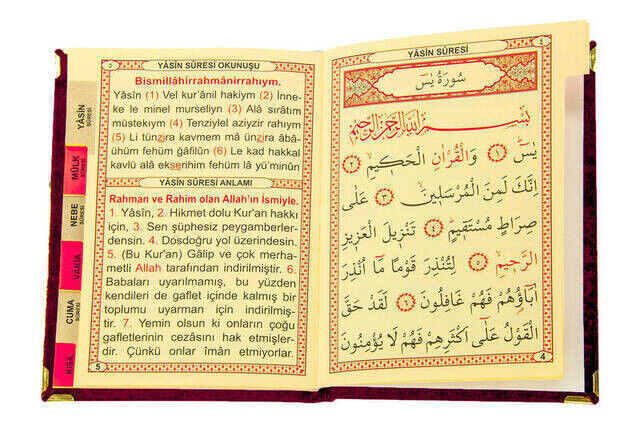 YÂSÎN SÛRESİ
MÜLK SÛRESİ
NEBE SÛRESİ
VÂKIA
CUMA SÛRESİ
KISA
٥
YÂSÎN SÛRESİ OKUNUŞU
Bismillâhirrahmânirrahıym.
Yâsîn (1) Vel kur'ânil hakiym (2) İnne-
ke le minel murseliyn (3) Alâ sırâtım
müstekıym (4) Tenziylel aziyzir rahıym
(5) Li tünzira kavmem mâ ünzira âbâ-
ühüm fehüm ğafilûn (6) Le kad hakkal
kavlü alâ ekserihim fehüm lâ yü'minûn
YÂSÎN SÛRESİ ANLAMI
Rahman ve Rahim olan Allah'ın İsmiyle.
1. Yâsîn, 2. Hikmet dolu Kur'an hakkı
için, 3. Sen şüphesiz peygamberler-
densin. 4. Dosdoğru yol üzerindesin.
5. (Bu Kur'an) Gâlip ve çok merha-
metli Allah tarafından indirilmiştir. 6.
Babaları uyarılmamış, bu yüzden
kendileri de gaflet içinde kalmış bir
toplumu uyarman için indirilmiş-
tir. 7. Yemin olsun ki onların çoğu
gafletlerinin cezasını hak etmişler-
dir. Çünkü onlar îmân etmiyorlar.
5
٤
YÂSÎN SÛRESİ
سُورَةُ يٰسٓ
بِسْمِ اللهِ الرَّحْمٰنِ الرَّحِيمِ
يٰسٓ ﴿١﴾ وَالْقُرْاٰنِ الْحَك۪يمِ ﴿٢﴾
اِنَّكَ لَمِنَ الْمُرْسَل۪ينَ ﴿٣﴾ عَلٰى
صِرَاطٍ مُسْتَق۪يمٍ ﴿٤﴾ تَنْز۪يلَ الْعَز۪يزِ
الرَّح۪يمِ ﴿٥﴾ لِتُنْذِرَ قَوْمًا مَٓا اُنْذِرَ
اٰبَٓاؤُ۬هُمْ فَهُمْ غَافِلُونَ ﴿٦﴾ لَقَدْ حَقَّ
الْقَوْلُ عَلٰٓى اَكْثَرِهِمْ فَهُمْ لَا يُؤْمِنُونَ
4